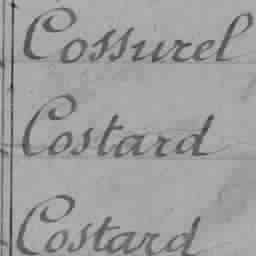 Cossurel
Costard
Costard